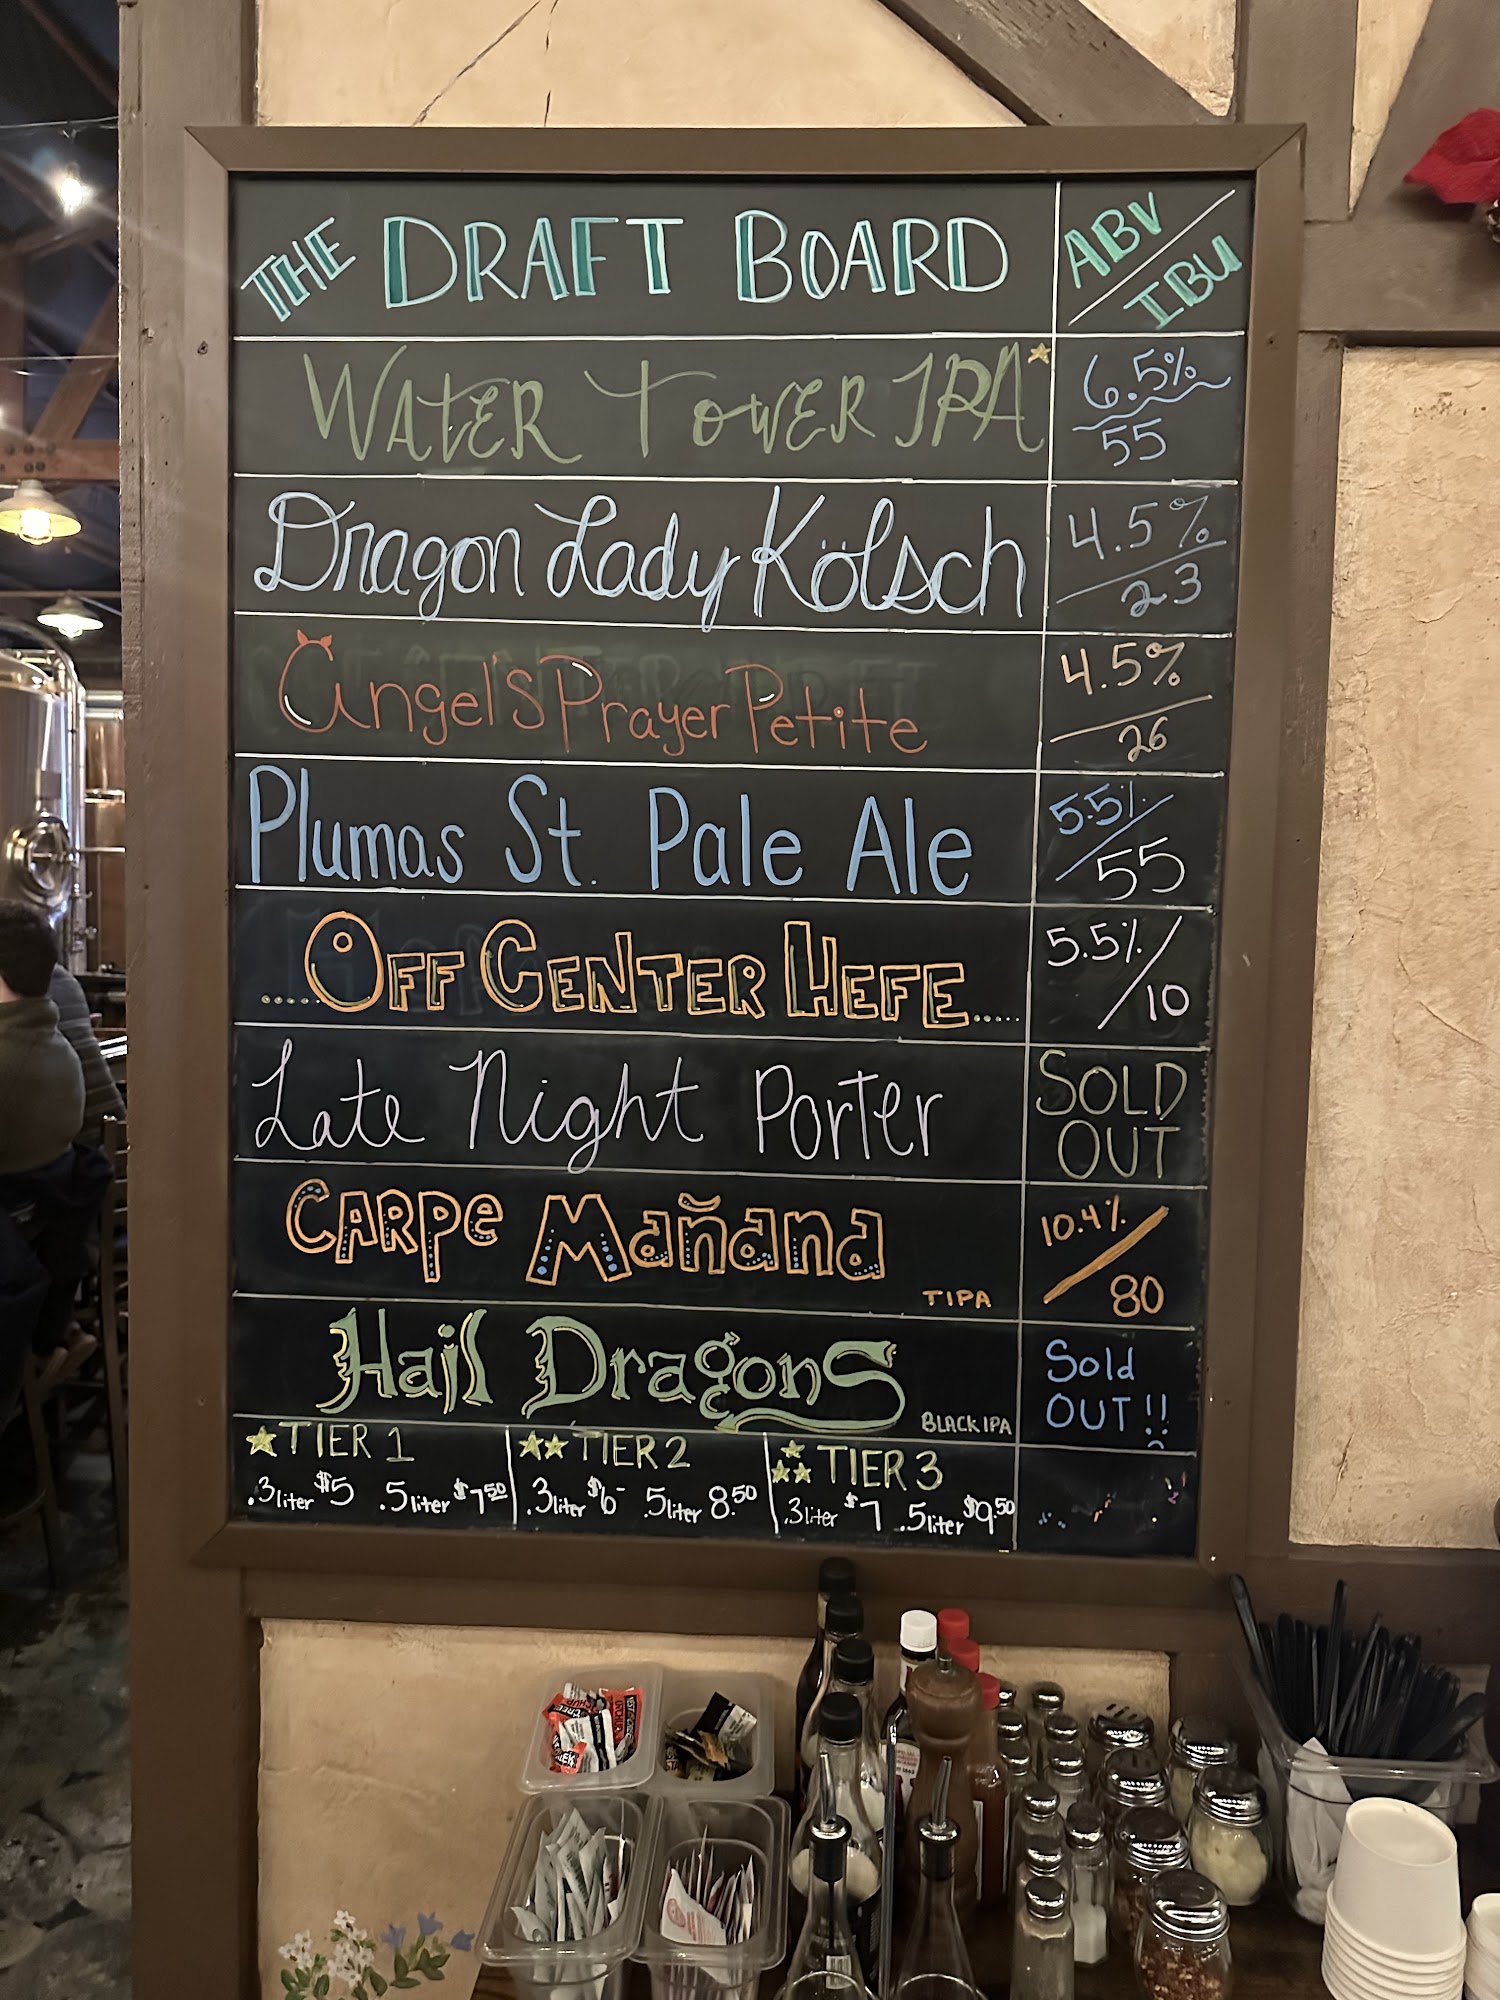 THE DRAFT BOARD
ABV/IBU
WATER TOWER IPA
6.5%
55
Dragon Lady Kölsch
4.5%
23
Angel's Prayer Petite
4.5%
26
Plumas St. Pale Ale
5.5%/
55
.....OFF CENTER HEFE.....
5.5%/
10
Late Night Porter
SOLD
OUT
CARPe Mañana
TIPA
10.4%/
80
Hail Dragons
BLACK IPA
Sold
OUT!!
TIER 1
.3liter $5 .5liter $7.50
TIER 2
.3liter $6- .5liter 8.50
TIER 3
.3liter $7 .5liter $9.50